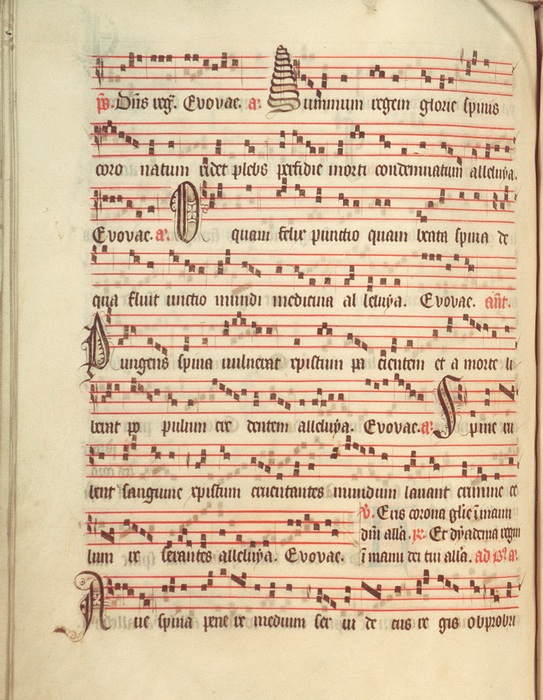 ps. Dn̄s reg̃. Evovae. a. Summum regem glorie spinis
coro natum videt plebs perfidie morti condemnatum alleluya.
Evovae. a. O quam felix punctio quam beata spina de
qua fluit unctio mundi medicina al leluya. Evovae. ant̃.
Pungens spina vulnerat xpistum pa cientem et a morte li
berat po pulum cre dentem alleluya. Evovae. a. Spine ru
bent sanguine xpistum cruentantes mundum lavant crimine ce
v̄. Eris corona glie ĩ manu
lum re serantes alleluya. Evovae. dn̄i all̃a. Et dyadema regni
ĩ manu dei tui all̃a. ad
Ave spina pene re medium ser vi de cus re gis obprobri